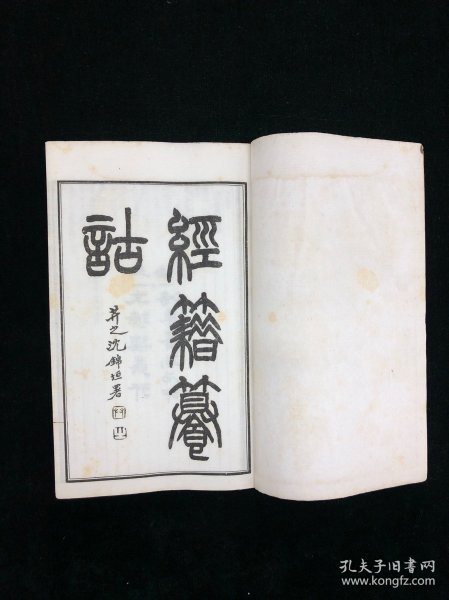 經籍籑
詁
沈錦垣署
孔夫子旧书网
www.kongfz.com